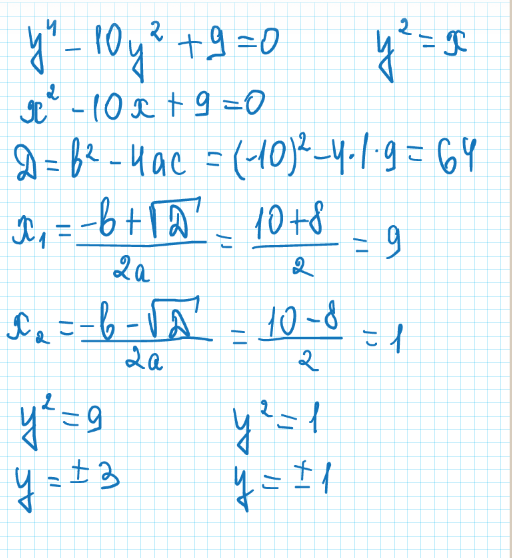 y⁴ - 10y² + 9 = 0 y² = x
x² - 10x + 9 = 0
D = b² - 4ac = (-10)² - 4·1·9 = 64
x₁ = (-b + √D)/2a = (10 + 8)/2 = 9
x₂ = (-b - √D)/2a = (10 - 8)/2 = 1
y² = 9 y² = 1
y = ±3 y = ±1